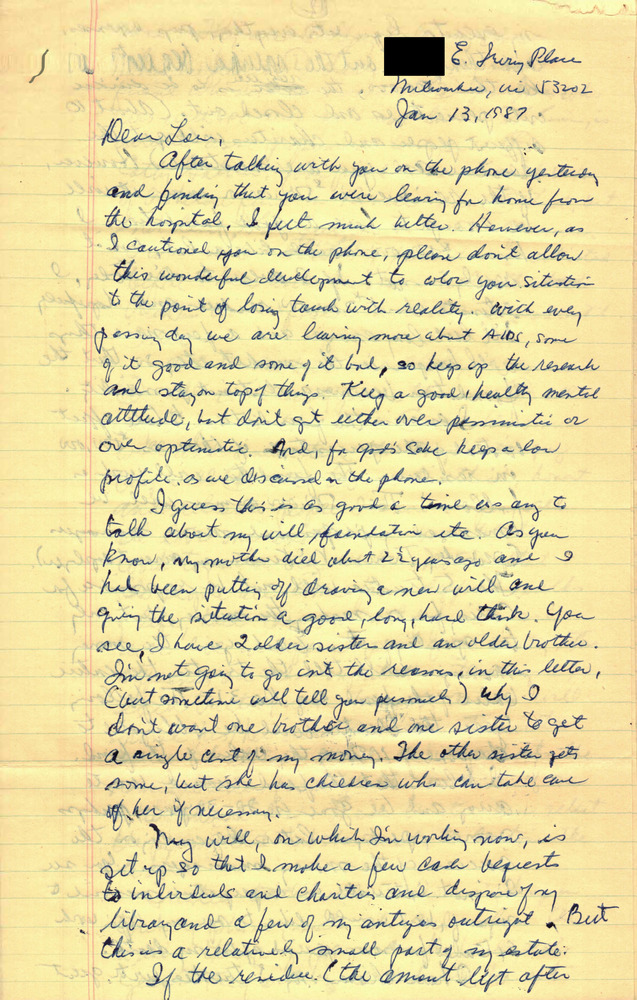 E. Irving Place
Milwaukee, Wi 53202
Jan 13, 1987
Dear Lou,
After talking with you on the phone yesterday
and finding that you were leaving for home from
the hospital, I felt much better. However, as
I cautioned you on the phone, please don't allow
this wonderful development to color your situation
to the point of losing touch with reality. With every
passing day we are learning more about AIDS, some
of it good and some of it bad, so keep up the research
and stay on top of things. Keep a good, healthy mental
attitude, but don't get either over pessimistic or
over optimistic. And, for god's sake keep a low
profile. as we discussed on the phone.
I guess this is as good a time as any to
talk about my will, foundation etc. As you
know, my mother died about 2½ years ago and I
had been putting off drawing a new will and
giving the situation a good, long, hard think. You
see, I have 2 older sister and an older brother.
I'm not going to go into the reasons, in this letter,
(but sometime will tell you personally) why I
don't want one brother and one sister to get
a single cent of my money. The other sister gets
some, but she has children who can take care
of her if necessary.
My will, on which I'm working now, is
set up so that I make a few cash bequests
to individuals and charities and dispose of my
library and a few of my antiques outright. But
this is a relatively small part of my estate.
If the residue (the amount left after